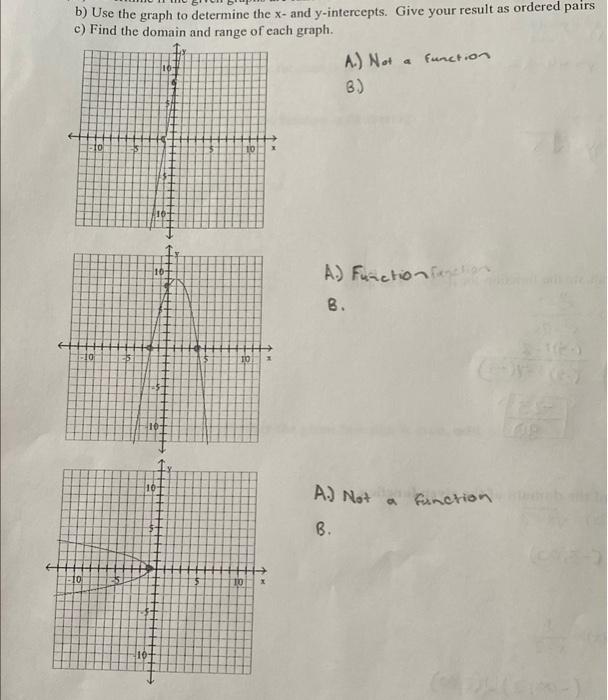 b) Use the graph to determine the x- and y-intercepts. Give your result as ordered pairs
c) Find the domain and range of each graph.
A.) Not a function
B.)
y
10
5
-10
-5
5
10
x
-5
-10
A.) Function
B.
y
10
5
-10
-5
5
10
x
-5
-10
A.) Not a function
B.
y
10
5
-10
-5
5
10
x
-5
-10